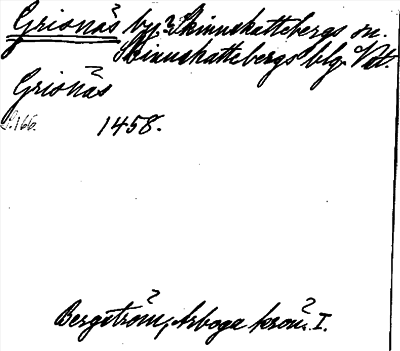 Grionäs by, Skinnskattebergs sn.
Skinnskattebergs blg. Vstl.
Grionäs
S. 166. 1458.
Bergström, Arboga krön. I.